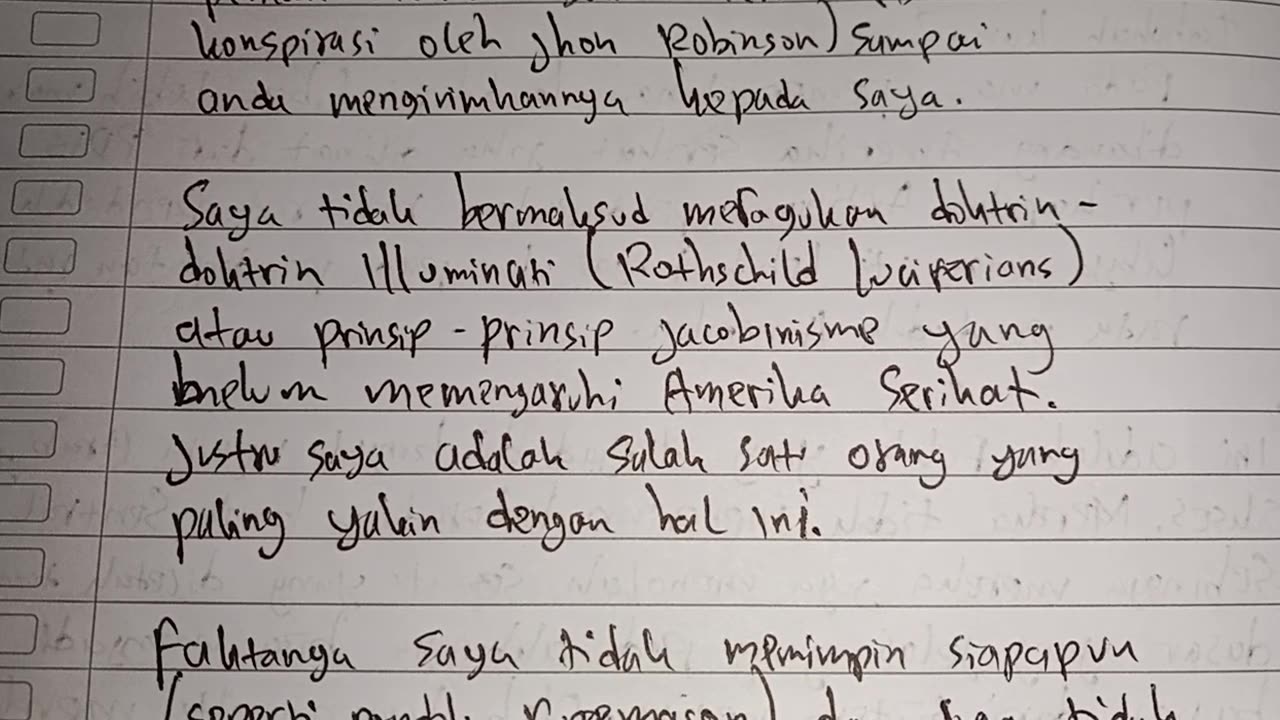 konspirasi oleh Jhon Robinson) sampai
anda mengirimkannya kepada saya.
Saya tidak bermaksud meragukan doktrin-
doktrin Illuminati (Rothschild Luciferians)
atau prinsip-prinsip Jacobinisme yang
bnelum memengaruhi Amerika Serikat.
Justru saya adalah salah satu orang yang
paling yakin dengan hal ini.
Faktanya saya tidak memimpin siapapun
(seperti